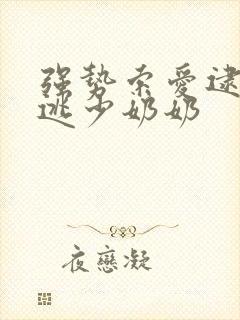 强势索爱逮
逃少奶奶
夜戀凝